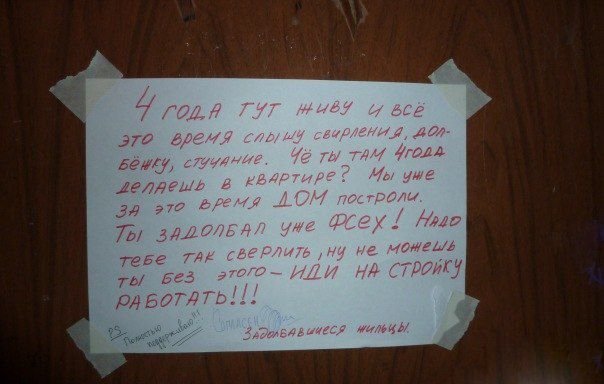 4 ГОДА ТУТ ЖИВУ И ВСЁ
ЭТО ВРЕМЯ СЛЫШУ СВИРЛЕНИЯ, ДОЛ-
БЁЖКУ, СТУЧАНИЕ. ЧЁ ТЫ ТАМ 4 ГОДА
ДЕЛАЕШЬ В КВАРТИРЕ? МЫ УЖЕ
ЗА ЭТО ВРЕМЯ ДОМ ПОСТРОЛИ.
ТЫ ЗАДОЛБАЛ УЖЕ ФСЕХ! НАДО
ТЕБЕ ТАК СВЕРЛИТЬ, НУ НЕ МОЖЕШЬ
ТЫ БЕЗ ЭТОГО – ИДИ НА СТРОЙКУ
РАБОТАТЬ!!!
P.S. Полностью
поддерживаю!!!
Согласен
ЗАДОЛБАВШИЕСЯ ЖИЛЬЦЫ.